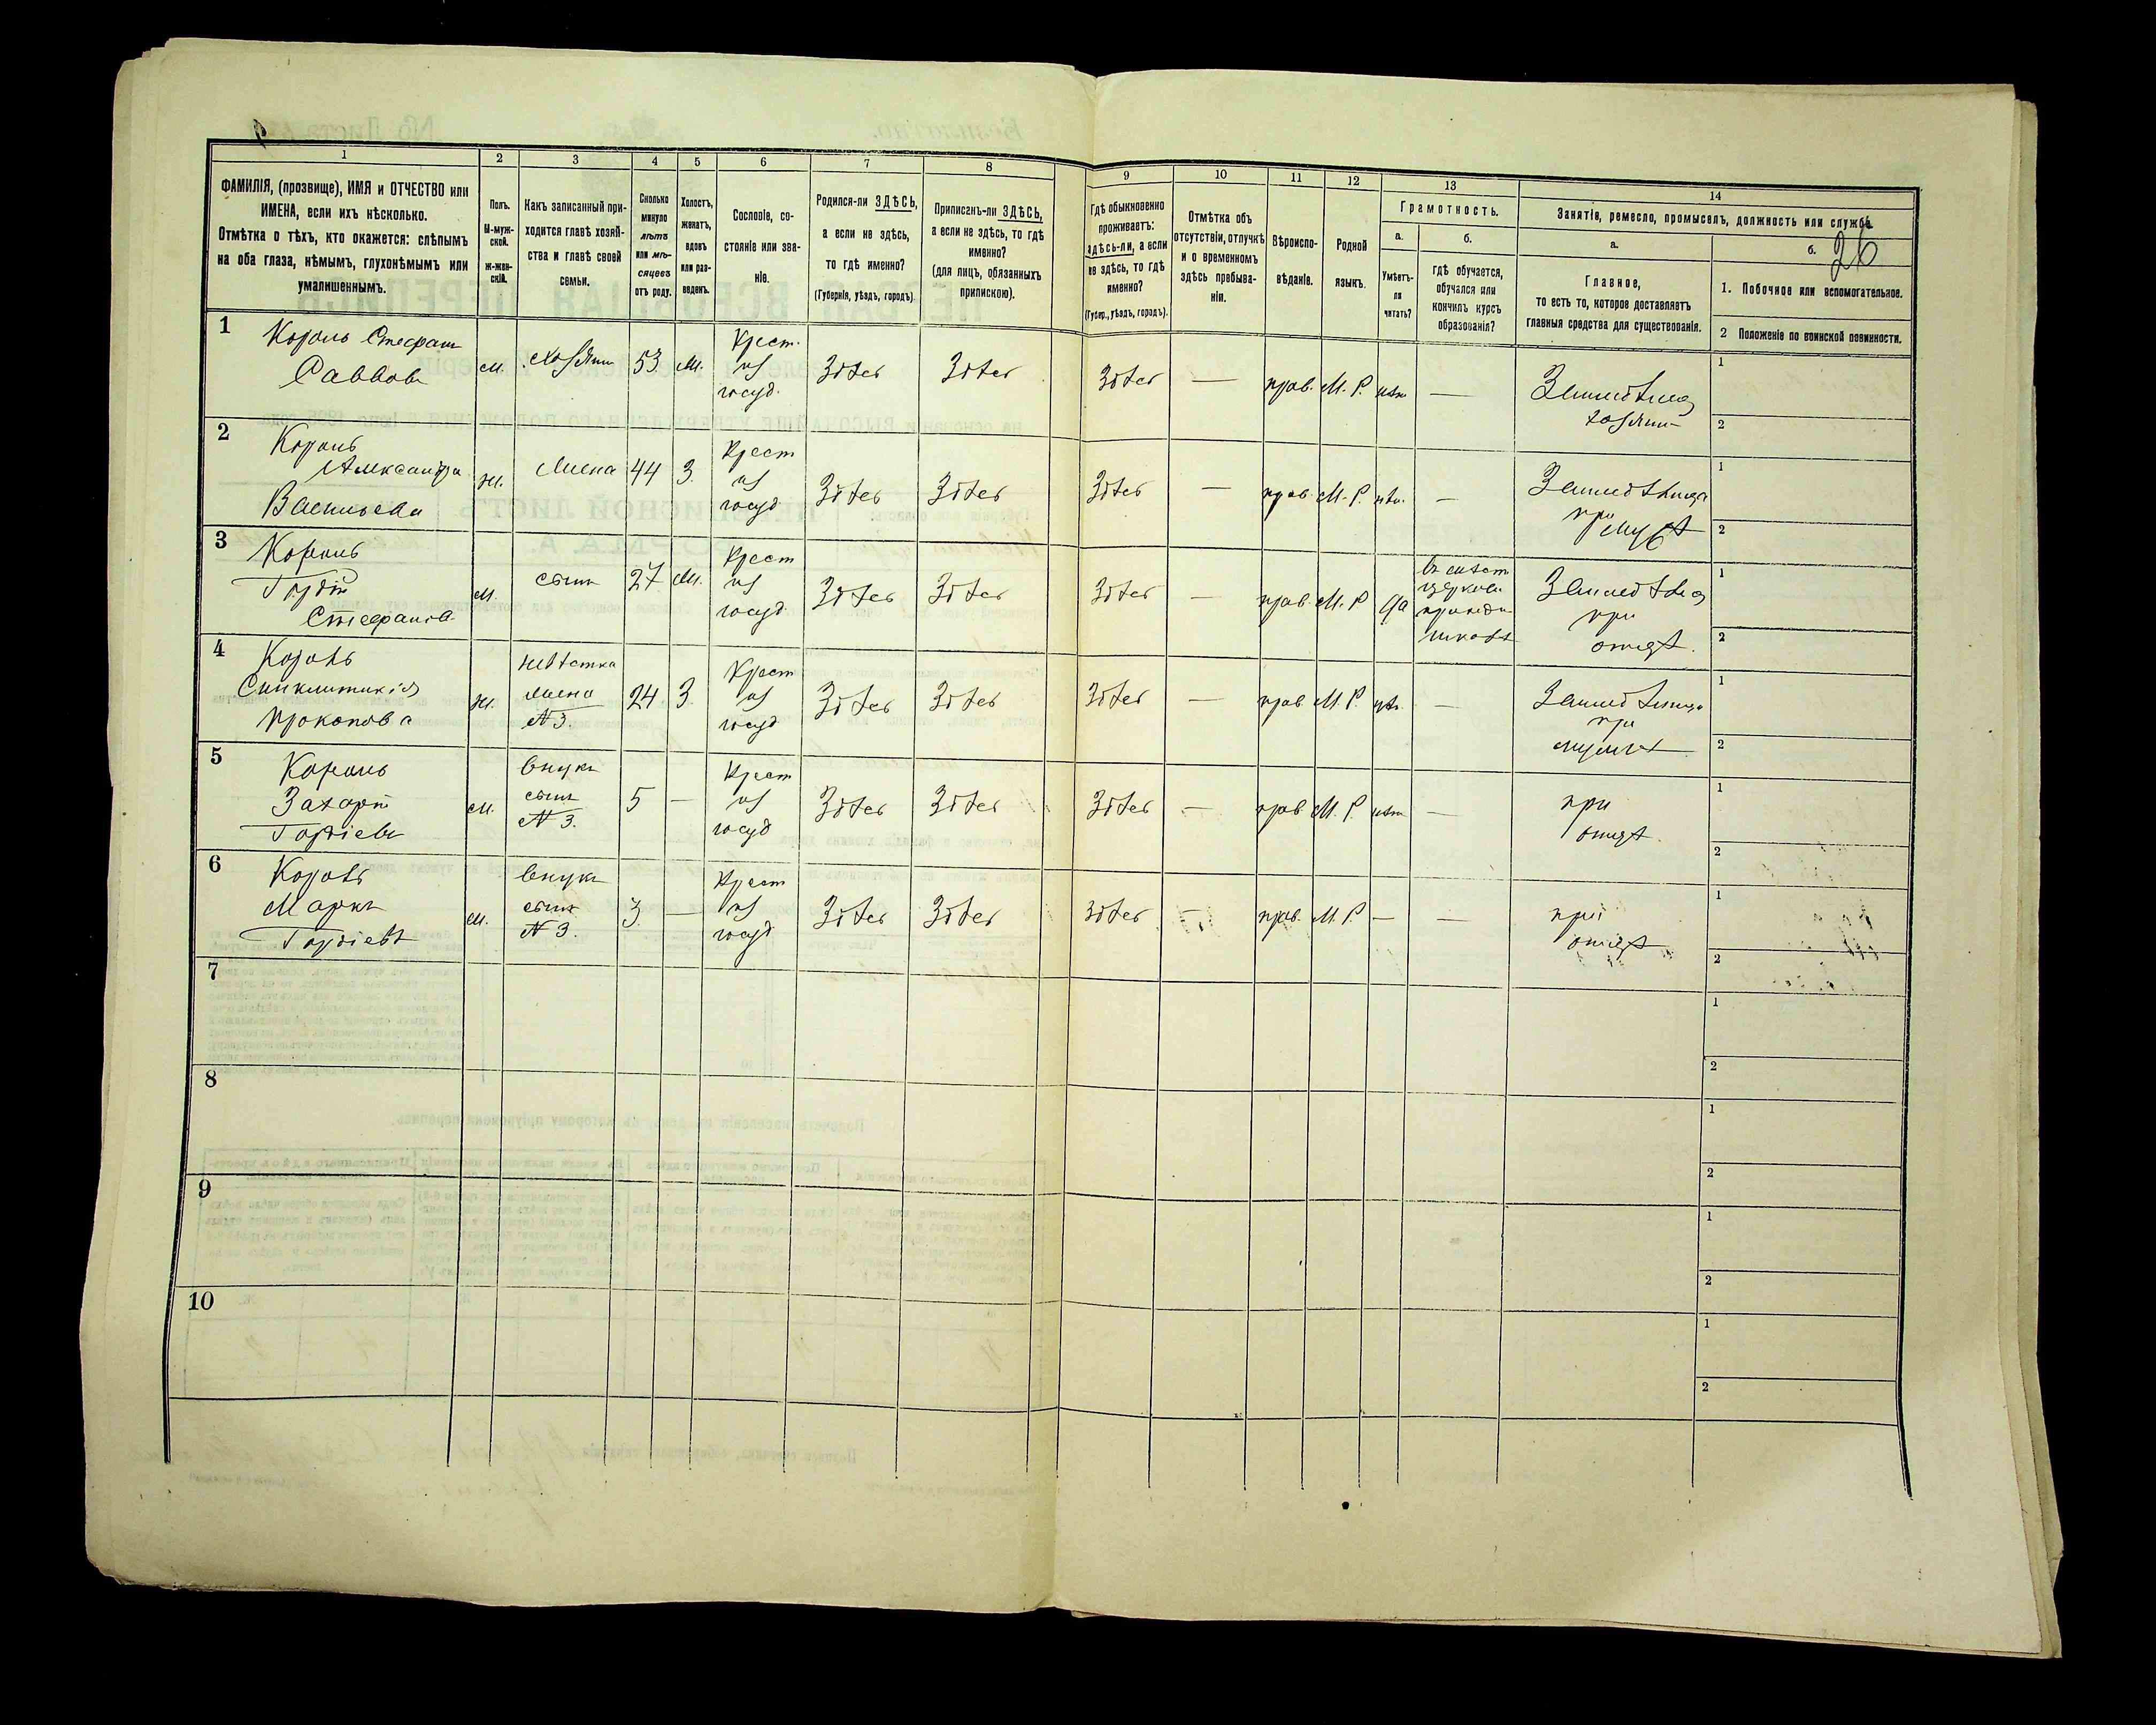 1 2 3 4 5 6 7 8 9 10 11 12 13 14
ФАМИЛІЯ, (прозвище), ИМЯ и ОТЧЕСТВО или
ИМЕНА, если ихъ нѣсколько.
Отмѣтка о тѣхъ, кто окажется: слѣпымъ
на оба глаза, нѣмымъ, глухонѣмымъ или
умалишеннымъ.
Полъ.
М-муж-
ской.
Ж-жен-
скій.
Какъ записанный при-
ходится главѣ хозяй-
ства и главѣ своей
семьи.
Сколько
минуло
лѣтъ
или мѣ-
сяцевъ
отъ роду.
Холостъ,
женатъ,
вдовъ
или раз-
веденъ.
Сословіе, со-
стояніе или зва-
ніе.
Родился-ли ЗДѢСЬ,
а если не здѣсь,
то гдѣ именно?
(Губернія, уѣздъ, городъ).
Приписанъ-ли ЗДѢСЬ,
а если не здѣсь, то гдѣ
именно?
(для лицъ, обязанныхъ
припискою).
Гдѣ обыкновенно
проживаетъ:
здѣсь-ли, а если
не здѣсь, то гдѣ
именно?
(Губер., уѣздъ, городъ).
Отмѣтка объ
отсутствіи, отлучкѣ
и о временномъ
здѣсь пребыва-
ніи.
Вѣроиспо-
вѣданіе.
Родной
языкъ.
Грамотность.
а.
Умѣетъ-
ли
читать?
б.
Гдѣ обучается,
обучался или
кончилъ курсъ
образованія?
Занятіе, ремесло, промыселъ, должность или служба.
26
а.
Главное,
то есть то, которое доставляетъ
главныя средства для существованія.
б.
1. Побочное или вспомогательное.
2 Положеніе по воинской повинности.
1
Король Стефанъ
Саввовъ
м.
хозяинъ
53
М.
Крест.
из
госуд.
Здѣсь
Здѣсь
Здѣсь
—
прав.
М. Р.
нѣтъ
—
Земледѣлец
хозяинъ
1
2
2
Король
Александра
Васильева
ж.
жена
44
З.
Крест
из
госуд
Здѣсь
Здѣсь
Здѣсь
—
прав.
М. Р.
нѣт.
—
при мужѣ
1
2
3
Король
Гордѣй
Стефановъ
м.
сынъ
27
М.
Крест
из
госуд.
Здѣсь
Здѣсь
Здѣсь
—
прав.
М. Р
да
церковно
приходск.
школѣ
Земледѣлец
при
отцѣ.
1
2
4
Король
Синклитикія
Прокопова
ж.
невѣстка
жена
№ 3.
24.
З.
Крест
из
госуд
Здѣсь
Здѣсь
Здѣсь
—
прав
М. Р.
нѣт.
—
при
мужѣ
1
2
5
Король
Захарій
Гордіевъ
м.
внукъ
сынъ
№ 3.
5
—
Крест
из
госуд
Здѣсь
Здѣсь
Здѣсь
—
прав
М. Р.
нѣтъ
—
при
отцѣ.
1
2
6
Король
Маркъ
Гордіевъ
м.
внукъ
сынъ
№ 3.
3
—
Крест
из
госуд
Здѣсь
Здѣсь
Здѣсь
—
прав.
М. Р
—
—
при
отцѣ
1
2
7
1
2
8
1
2
9
1
2
10
1
2